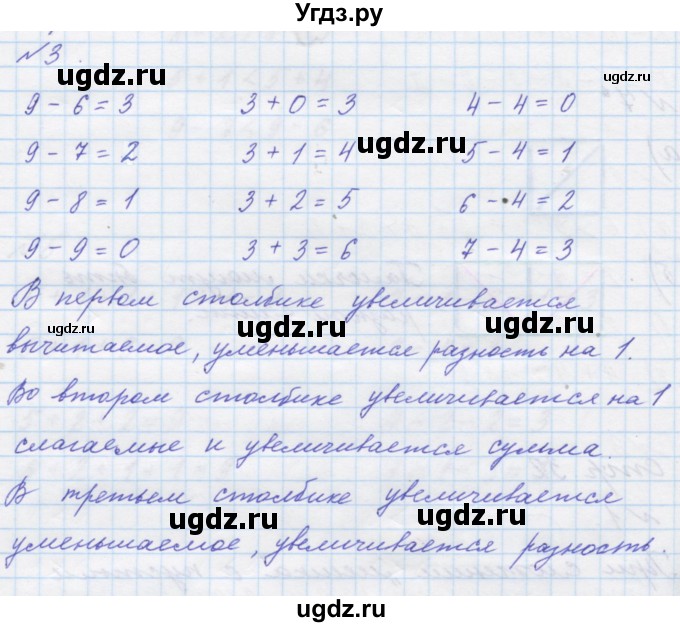 Угдз.ру
№3
ugdz.ru ugdz.ru
9 - 6 = 3 3 + 0 = 3 4 - 4 = 0
9 - 7 = 2 3 + 1 = 4 ugdz.ru 5 - 4 = 1
9 - 8 = 1 3 + 2 = 5 6 - 4 = 2
9 - 9 = 0 3 + 3 = 6 7 - 4 = 3
В первом столбике увеличивается
ugdz.ru ugdz.ru ugdz.ru
вычитаемое, уменьшается разность на 1.
Во втором столбике увеличивается на 1
слагаемые и увеличивается сумма.
В третьем столбике увеличивается
ugdz.ru ugdz.ru
уменьшаемое, увеличивается разность.
ugdz.ru